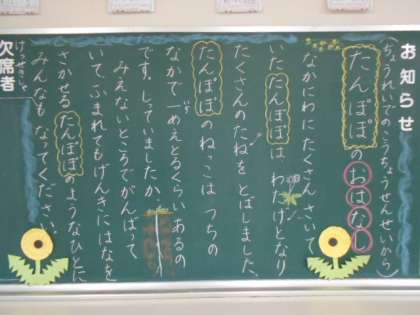 お知らせ
(ちょうれいでのこうちょうせんせいから)
たんぽぽのおはなし
なかにわにたくさんさいて
いたたんぽぽは わたげとなり
たくさんのたねを とばしました。
たんぽぽのねっこは つちの
なかで 一めえとるくらい あるの
です。しっていましたか。
みえないところでがんばって
いて、ふまれてもげんきにはなを
さかせるたんぽぽのようなひとに
みんなも なってください。
けっせきしゃ
欠席者